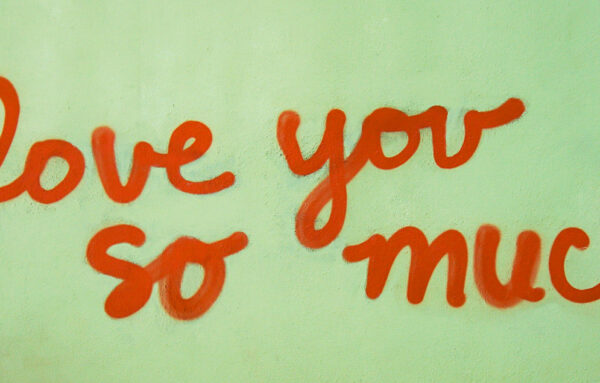 love you
so muc